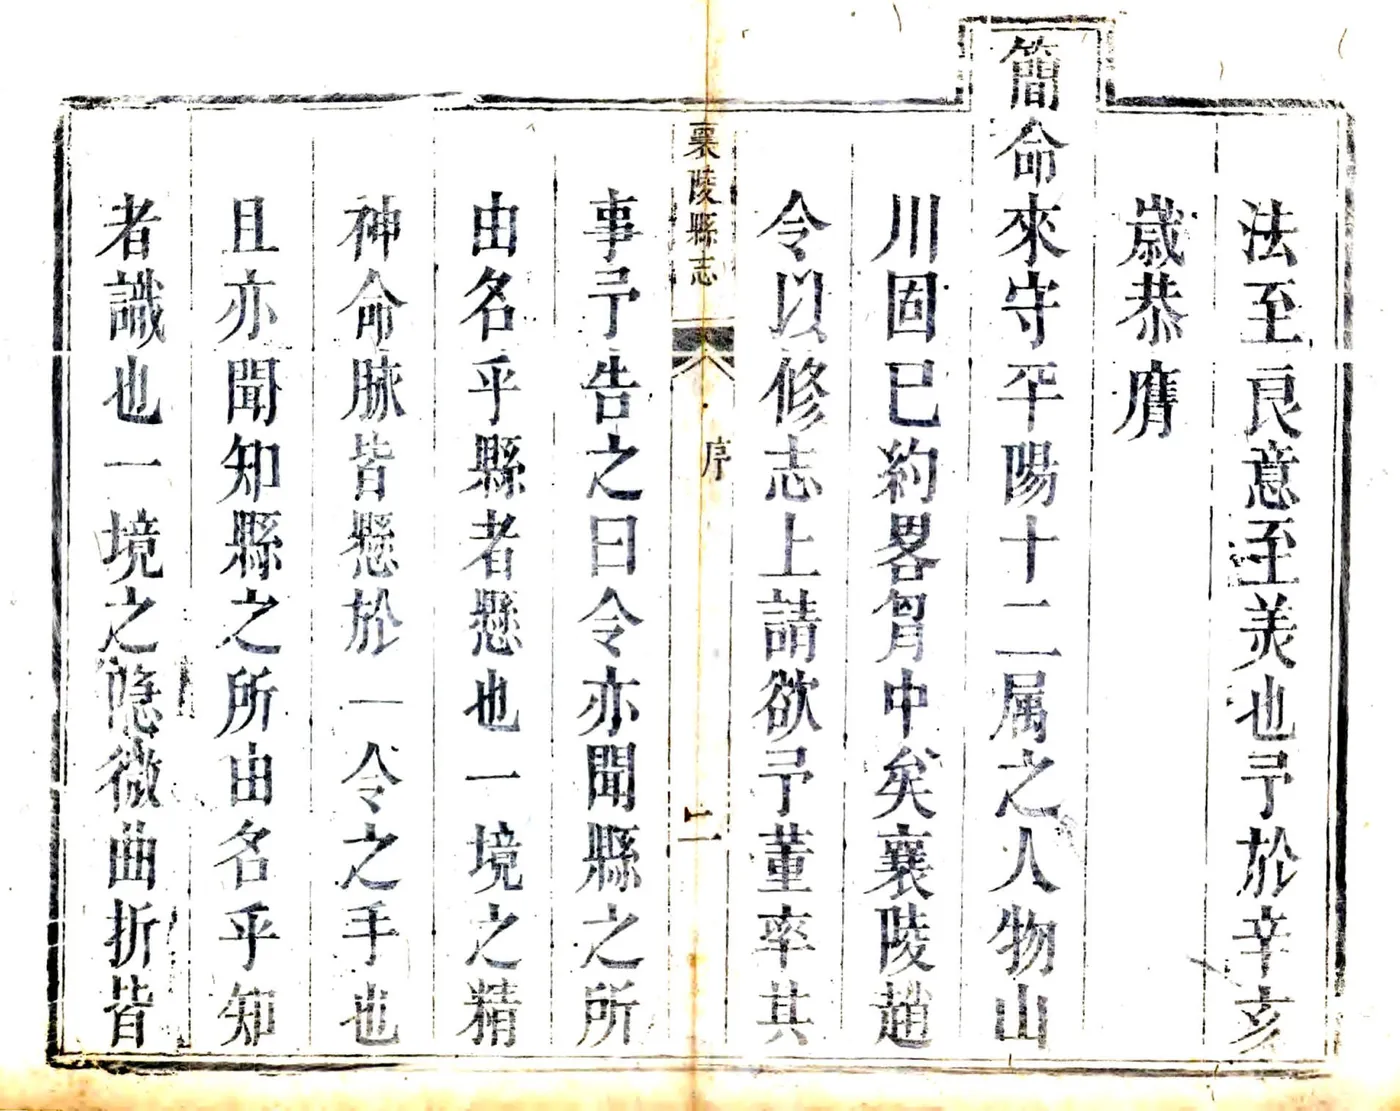 法至良意至美也予於辛亥
歲恭膺
簡命來守平陽十二属之人物山
川固已約畧胷中矣襄陵趙
令以修志上請欲予董率其
襄陵縣志
序
二
事予告之曰令亦聞縣之所
由名乎縣者懸也一境之精
神命脉皆懸於一令之手也
且亦聞知縣之所由名乎知
者識也一境之隐微曲折皆